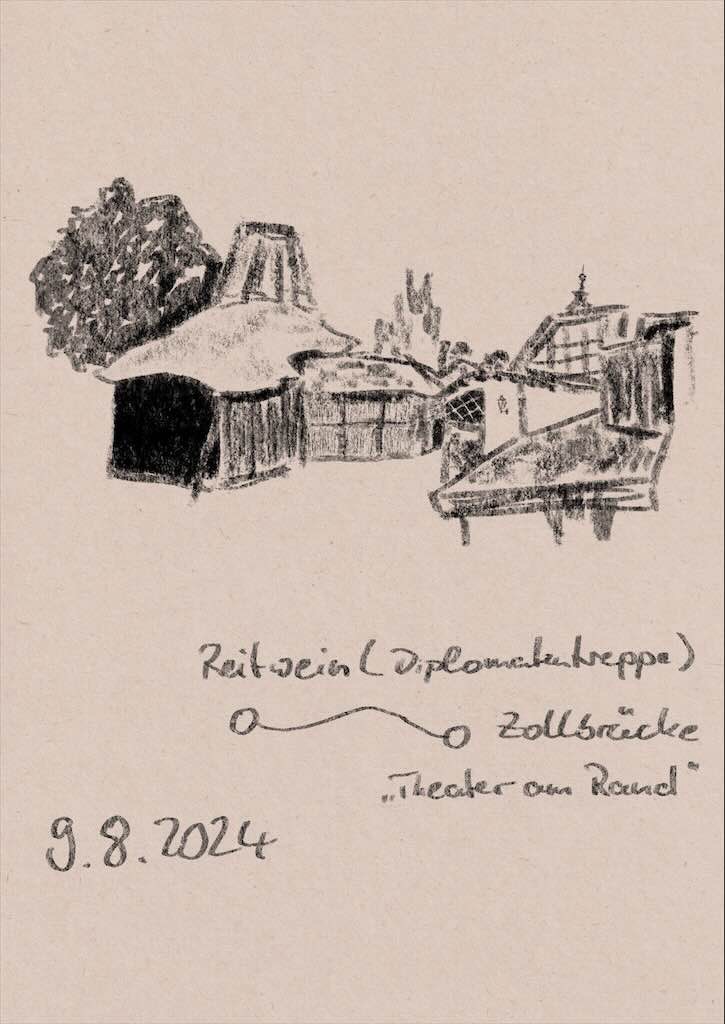 Reitwein (Diplomatentreppe)
Zollbrücke
„Theater am Rand“
9.8.2024